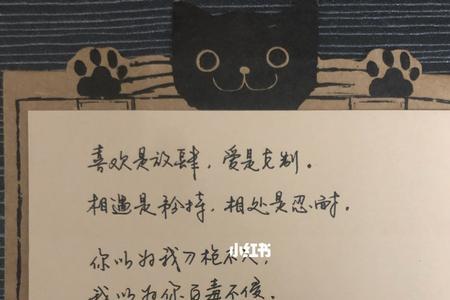 喜欢是放肆，爱是克制。
相遇是矜持，相处是忍耐。
你以为我刀枪不入，
我以为你百毒不侵。
小红书